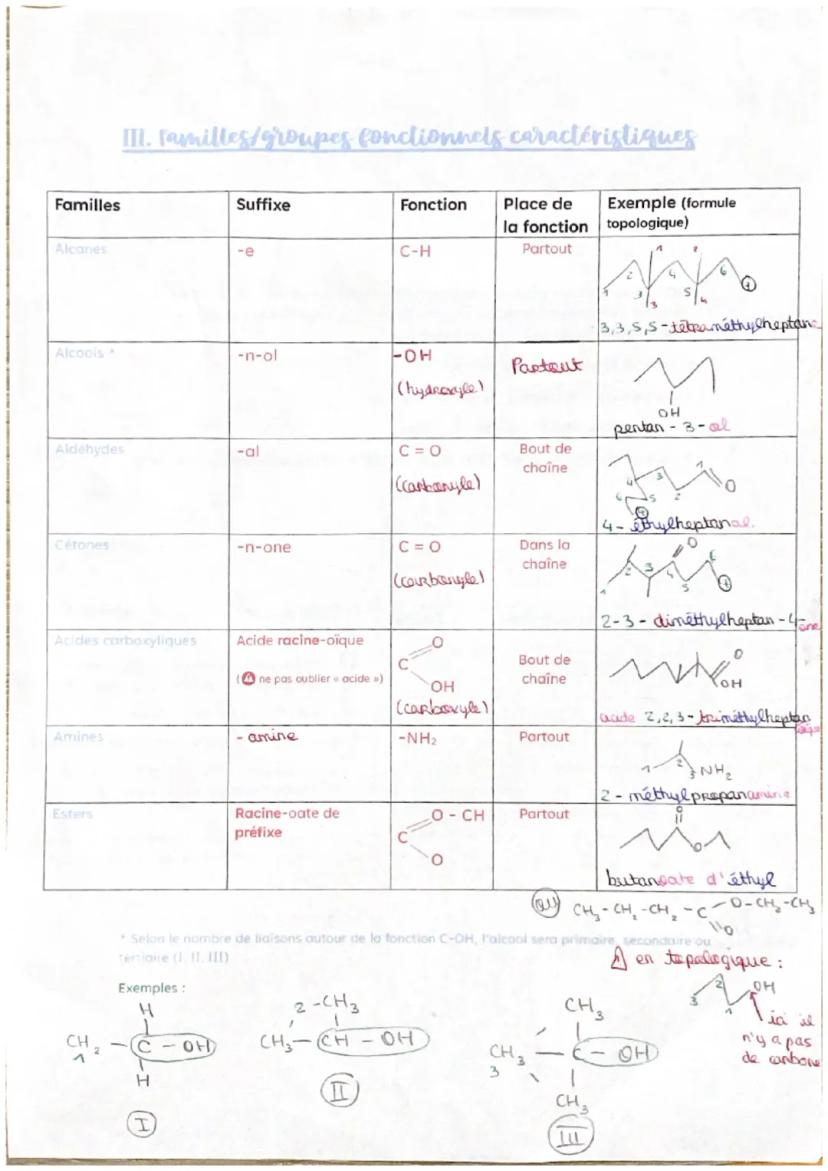 III. Familles/groupes fonctionnels caractéristiques
Familles Suffixe Fonction Place de la fonction Exemple (formule topologique)
Alcanes -e C-H Partout
1 2 3 4 5 6 7
1 2 3 4
3,3,5,5-tétraméthylheptane
Alcools * -n-ol -OH (hydroxyle) Partout
OH
pentan-3-ol
Aldéhydes -al C = O (carbonyle) Bout de chaîne
1 2 3 4 5 6 7 O
4-éthylheptanal
Cétones -n-one C = O (carbonyle) Dans la chaîne
1 2 3 4 5 6 7 O
2-3-diméthylheptan-4-one
Acides carboxyliques Acide racine-oïque
(⚠ ne pas oublier « acide »)
C O OH
(carboxyle)
Bout de chaîne
O OH
acide 2,2,3-triméthylheptanoïque
Amines -amine -NH₂ Partout
1 2 3 NH₂
2-méthylpropanamine
Esters Racine-oate de préfixe
O - CH
C
O
Partout
O
O
butanoate d'éthyl
OU CH₃-CH₂-CH₂-C O-CH₂-CH₃
O
* Selon le nombre de liaisons autour de la fonction C-OH, l'alcool sera primaire, secondaire ou
tertiaire (I, II, III)
⚠ en topologique :
3 2 1 OH
ici il
n'y a pas
de carbone
Exemples :
H
CH₂ - C - OH
1
H
I
2 -CH₃
1
CH₃- CH - OH
II
CH₃
CH₃ - C - OH
3
CH₃
III